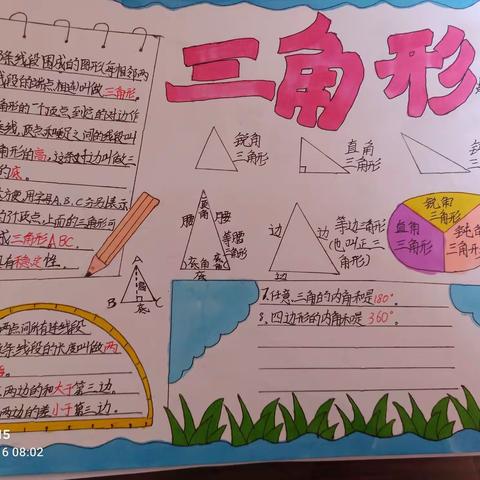 三角形
条线段围成的图形(每相邻两
线段的端点相连)叫做三角形。
角形的一个顶点到它的对边作
垂线,顶点和垂足之间的线段叫
角形的高,这条对边叫做三
的底。
方便,用字母A、B、C分别表示
的3个顶点,上面的三角形可
成三角形ABC
具有稳定性。
锐角
三角形
直角
三角形
钝
三角形
顶角
腰
腰
等腰
三角形
底角
底角
底
边
边
边
等边三角形
(也叫正三
角形)
锐角
三角形
直角
三角形
钝角
三角形
A
高
B
C
底
两点间所有连线段
条线段的长度叫做两
两边的和大于第三边。
两边的差小于第三边。
7.任意三角的内角和是180°。
8、四边形的内角和是360°。
15
6 08:02